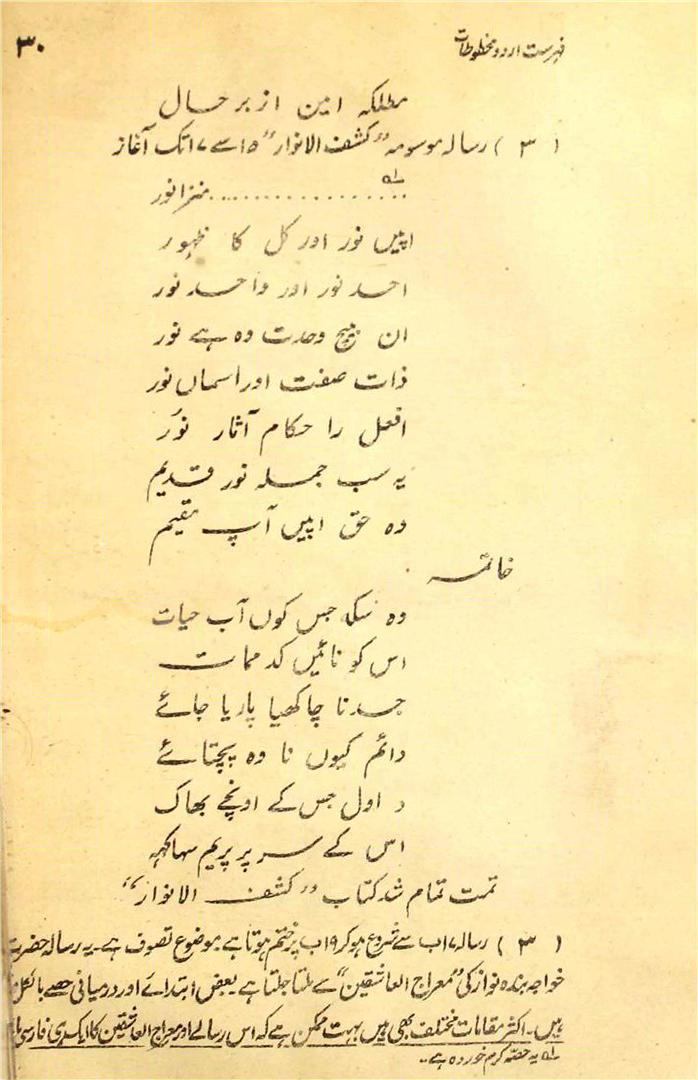 فہرست اردو مخطوطات
۳۰
مطلکہ امین از بر حال
(۳) رسالہ موسومہ ”کشف الانوار“ ۱۵ سے ۱۷ تک آغاز
.................... منزا نور ؎۱
اپیں نور اور کل کا ظہور
احد نور اور واحد نور
ان بیچ وحدت وہ ہے نور
ذات صفت اور اسماں نور
افعل را حکام آثار نور
یہ سب جملہ نور قدیم
وہ حق اپیں آپ مقیم
خاتمہ
وہ سکہ جس کوں آب حیات
اس کو نائیں کد ممات
جد نا چاکھیا پاریا جائے
دائم کیوں نا وہ پچتائے
د اول جس کے اونچے بھاک
اس کے سر پر پریم سہاکہہ
تمت تمام شد کتاب ”کشف الانوار“
(۳) رسالہ ۱۷ب سے شروع ہو کر ۱۹ب پر ختم ہوتا ہے۔ موضوع تصوف ہے۔ یہ رسالہ حضرت
خواجہ بندہ نواز کی ”معراج العاشقین“ سے ملتا جلتا ہے بعض ابتدائے اور درمیانی حصے بالکل
ہیں۔ اکثر مقامات مختلف بھی ہیں بہت ممکن ہے کہ اس رسالے اور معراج العاشقین کا ایک ہی فارسی
؎۱ یہ حصہ کرم خوردہ ہے۔